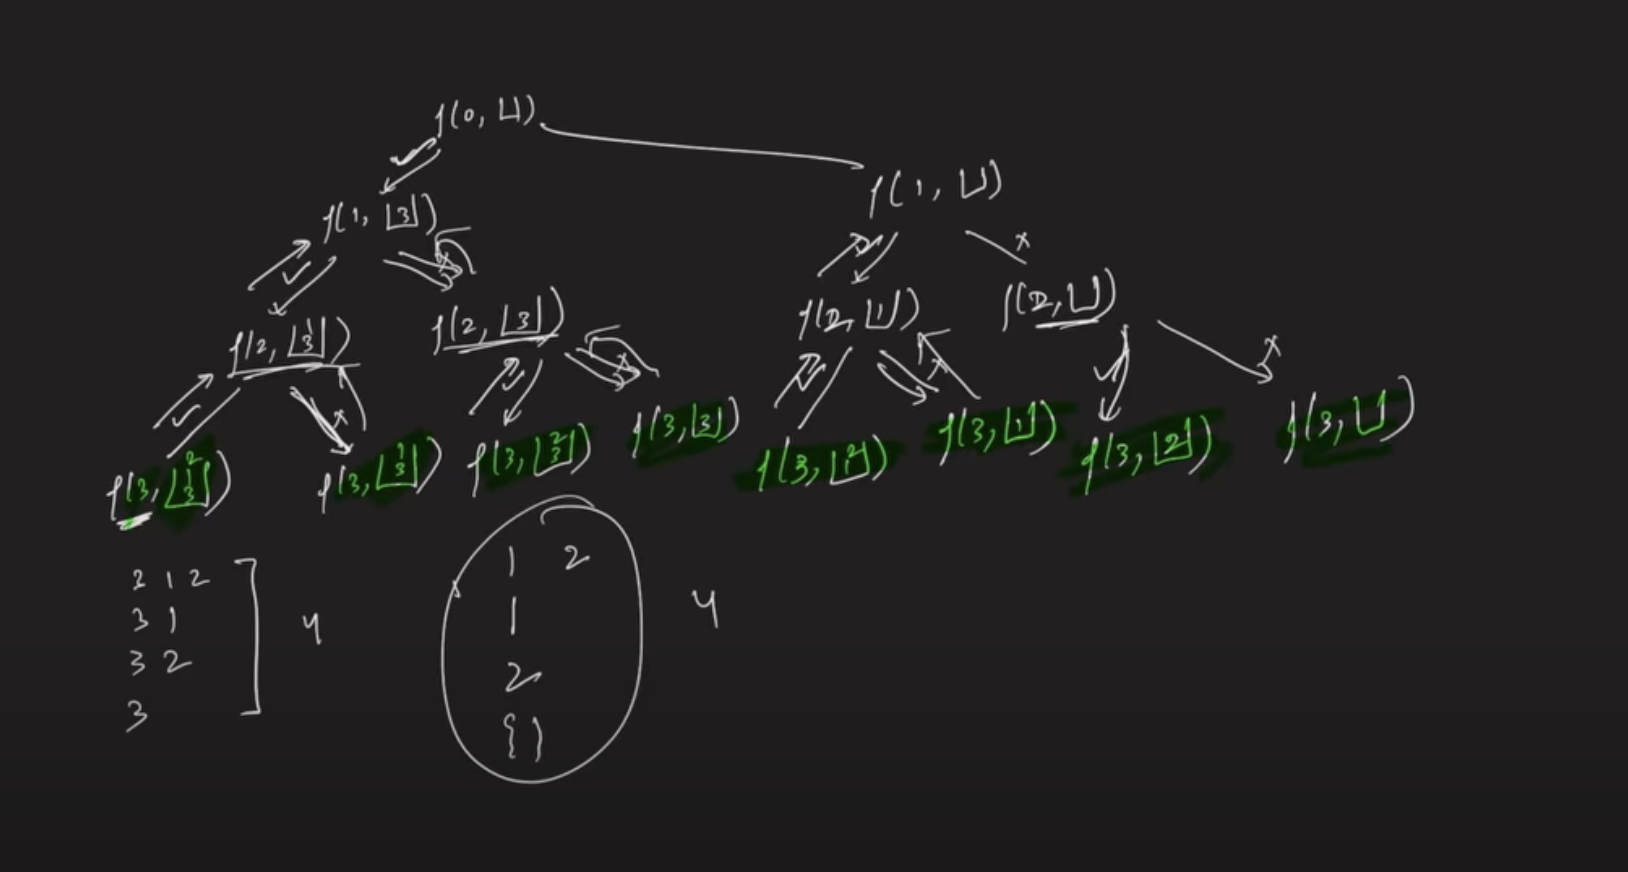 f(0, [])
f(1, [3]) f(1, [])
f(2, [1 3]) f(2, [3]) f(2, [1]) f(2, [])
f(3, [2 1 3]) f(3, [1 3]) f(3, [2 3]) f(3, [3]) f(3, [2 1]) f(3, [1]) f(3, [2]) f(3, [])
3 1 2
3 1
3 2
3
4
1 2
1
2
{ }
4